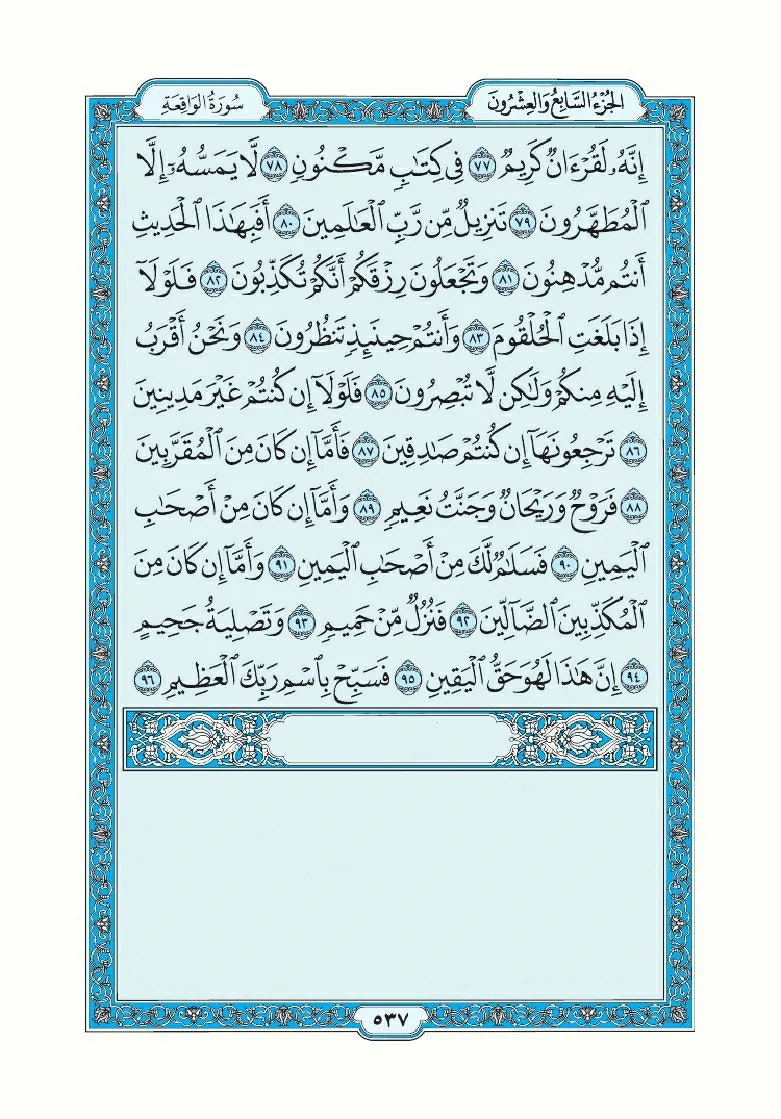 الجُزْءُ السَّابِعُ وَالعِشْرُونَ
سُورَةُ الوَاقِعَةِ
إِنَّهُۥ لَقُرْءَانٌ كَرِيمٌ ٧٧ فِى كِتَٰبٍ مَّكْنُونٍ ٧٨ لَّا يَمَسُّهُۥٓ إِلَّا
ٱلْمُطَهَّرُونَ ٧٩ تَنزِيلٌ مِّن رَّبِّ ٱلْعَٰلَمِينَ ٨٠ أَفَبِهَٰذَا ٱلْحَدِيثِ
أَنتُم مُّدْهِنُونَ ٨١ وَتَجْعَلُونَ رِزْقَكُمْ أَنَّكُمْ تُكَذِّبُونَ ٨٢ فَلَوْلَآ
إِذَا بَلَغَتِ ٱلْحُلْقُومَ ٨٣ وَأَنتُمْ حِينَئِذٍ تَنظُرُونَ ٨٤ وَنَحْنُ أَقْرَبُ
إِلَيْهِ مِنكُمْ وَلَٰكِن لَّا تُبْصِرُونَ ٨٥ فَلَوْلَآ إِن كُنتُمْ غَيْرَ مَدِينِينَ
٨٦ تَرْجِعُونَهَآ إِن كُنتُمْ صَٰدِقِينَ ٨٧ فَأَمَّآ إِن كَانَ مِنَ ٱلْمُقَرَّبِينَ
٨٨ فَرَوْحٌ وَرَيْحَانٌ وَجَنَّتُ نَعِيمٍ ٨٩ وَأَمَّآ إِن كَانَ مِنْ أَصْحَٰبِ
ٱلْيَمِينِ ٩٠ فَسَلَٰمٌ لَّكَ مِنْ أَصْحَٰبِ ٱلْيَمِينِ ٩١ وَأَمَّآ إِن كَانَ مِنَ
ٱلْمُكَذِّبِينَ ٱلضَّآلِّينَ ٩٢ فَنُزُلٌ مِّنْ حَمِيمٍ ٩٣ وَتَصْلِيَةُ جَحِيمٍ
٩٤ إِنَّ هَٰذَا لَهُوَ حَقُّ ٱلْيَقِينِ ٩٥ فَسَبِّحْ بِٱسْمِ رَبِّكَ ٱلْعَظِيمِ ٩٦
٥٣٧